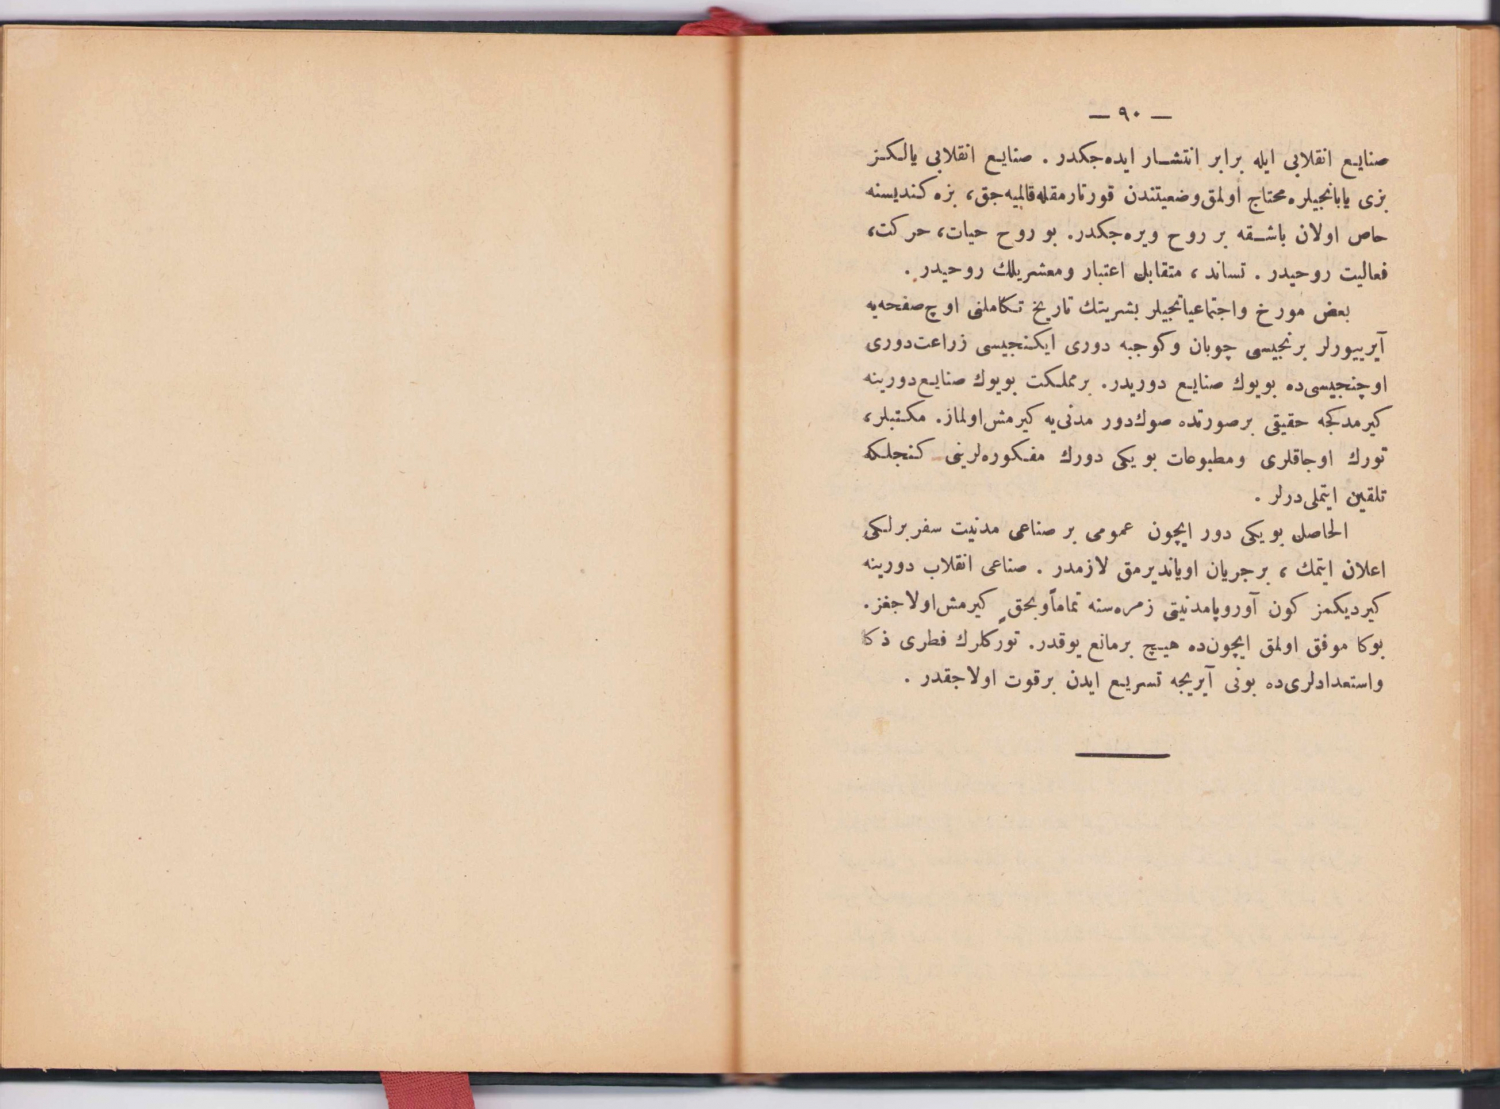 — ٩٠ —
صنایع انقلابی ایله برابر انتشار ایده‌جكدر . صنایع انقلابی یالكز
بزی یابانجیلره محتاج اولمق وضعیتندن قورتارمقله قالمیه‌جق، بزه كندیسنه
خاص اولان باشقه بر روح ویره‌جكدر. بو روح حیات، حركت،
فعالیت روحیدر . تساند ، متقابل اعتبار ومعشریلك روحیدر .
بعض مورخ واجتماعیاتجیلر بشریتك تاریخ تكاملنی اوچ صفحه‌یه
آیرییورلر برنجیسی چوبان وكوچبه دوری ایكنجیسی زراعت دوری
اوچنجیسی ده بویوك صنایع دوریدر. بر مملكت بویوك صنایع دورینه
كیرمدكجه حقیقی بر صورتده صوك دور مدنی یه كیرمش اولماز. مكتبلر،
تورك اوجاقلری ومطبوعات بو یكی دورك مفكوره‌لرینی كنجلكه
تلقین ایتملی درلر .
الحاصل بو یكی دور ایچون عمومی بر صناعی مدنیت سفربرلكی
اعلان ایتمك ، بر جریان اویاندیرمق لازمدر . صناعی انقلاب دورینه
كیردیكمز كون آوروپا مدنیتی زمره‌سنه تماماً وبحقٍ كیرمش اولاجغز.
بوكا موفق اولمق ایچون ده هیچ بر مانع یوقدر. توركلرك فطری ذكا
واستعدادلری ده بونی آیریجه تسریع ایدن بر قوت اولاجقدر .